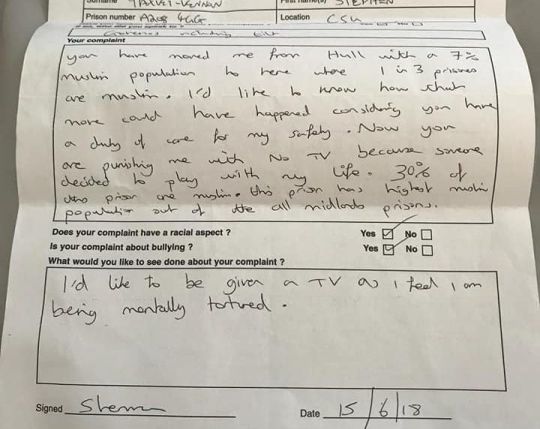 YAXLEY-LENNON
STEPHEN
Prison number
Location CSU
Your complaint
you have moved me from Hull with a 7%
muslim population to here where 1 in 3 prisoners
are muslim. I'd like to know how that
move could have happened considering you have
a duty of care for my safety. Now you
are punishing me with No TV because someone
decided to play with my life. 30% of
this prison are muslim. this prison has highest muslim
population out of the all midlands prisons.
Does your complaint have a racial aspect ? Yes No
Is your complaint about bullying ? Yes No
What would you like to see done about your complaint ?
I'd like to be given a TV as I feel I am
being mentally tortured.
Signed
Date 15/6/18